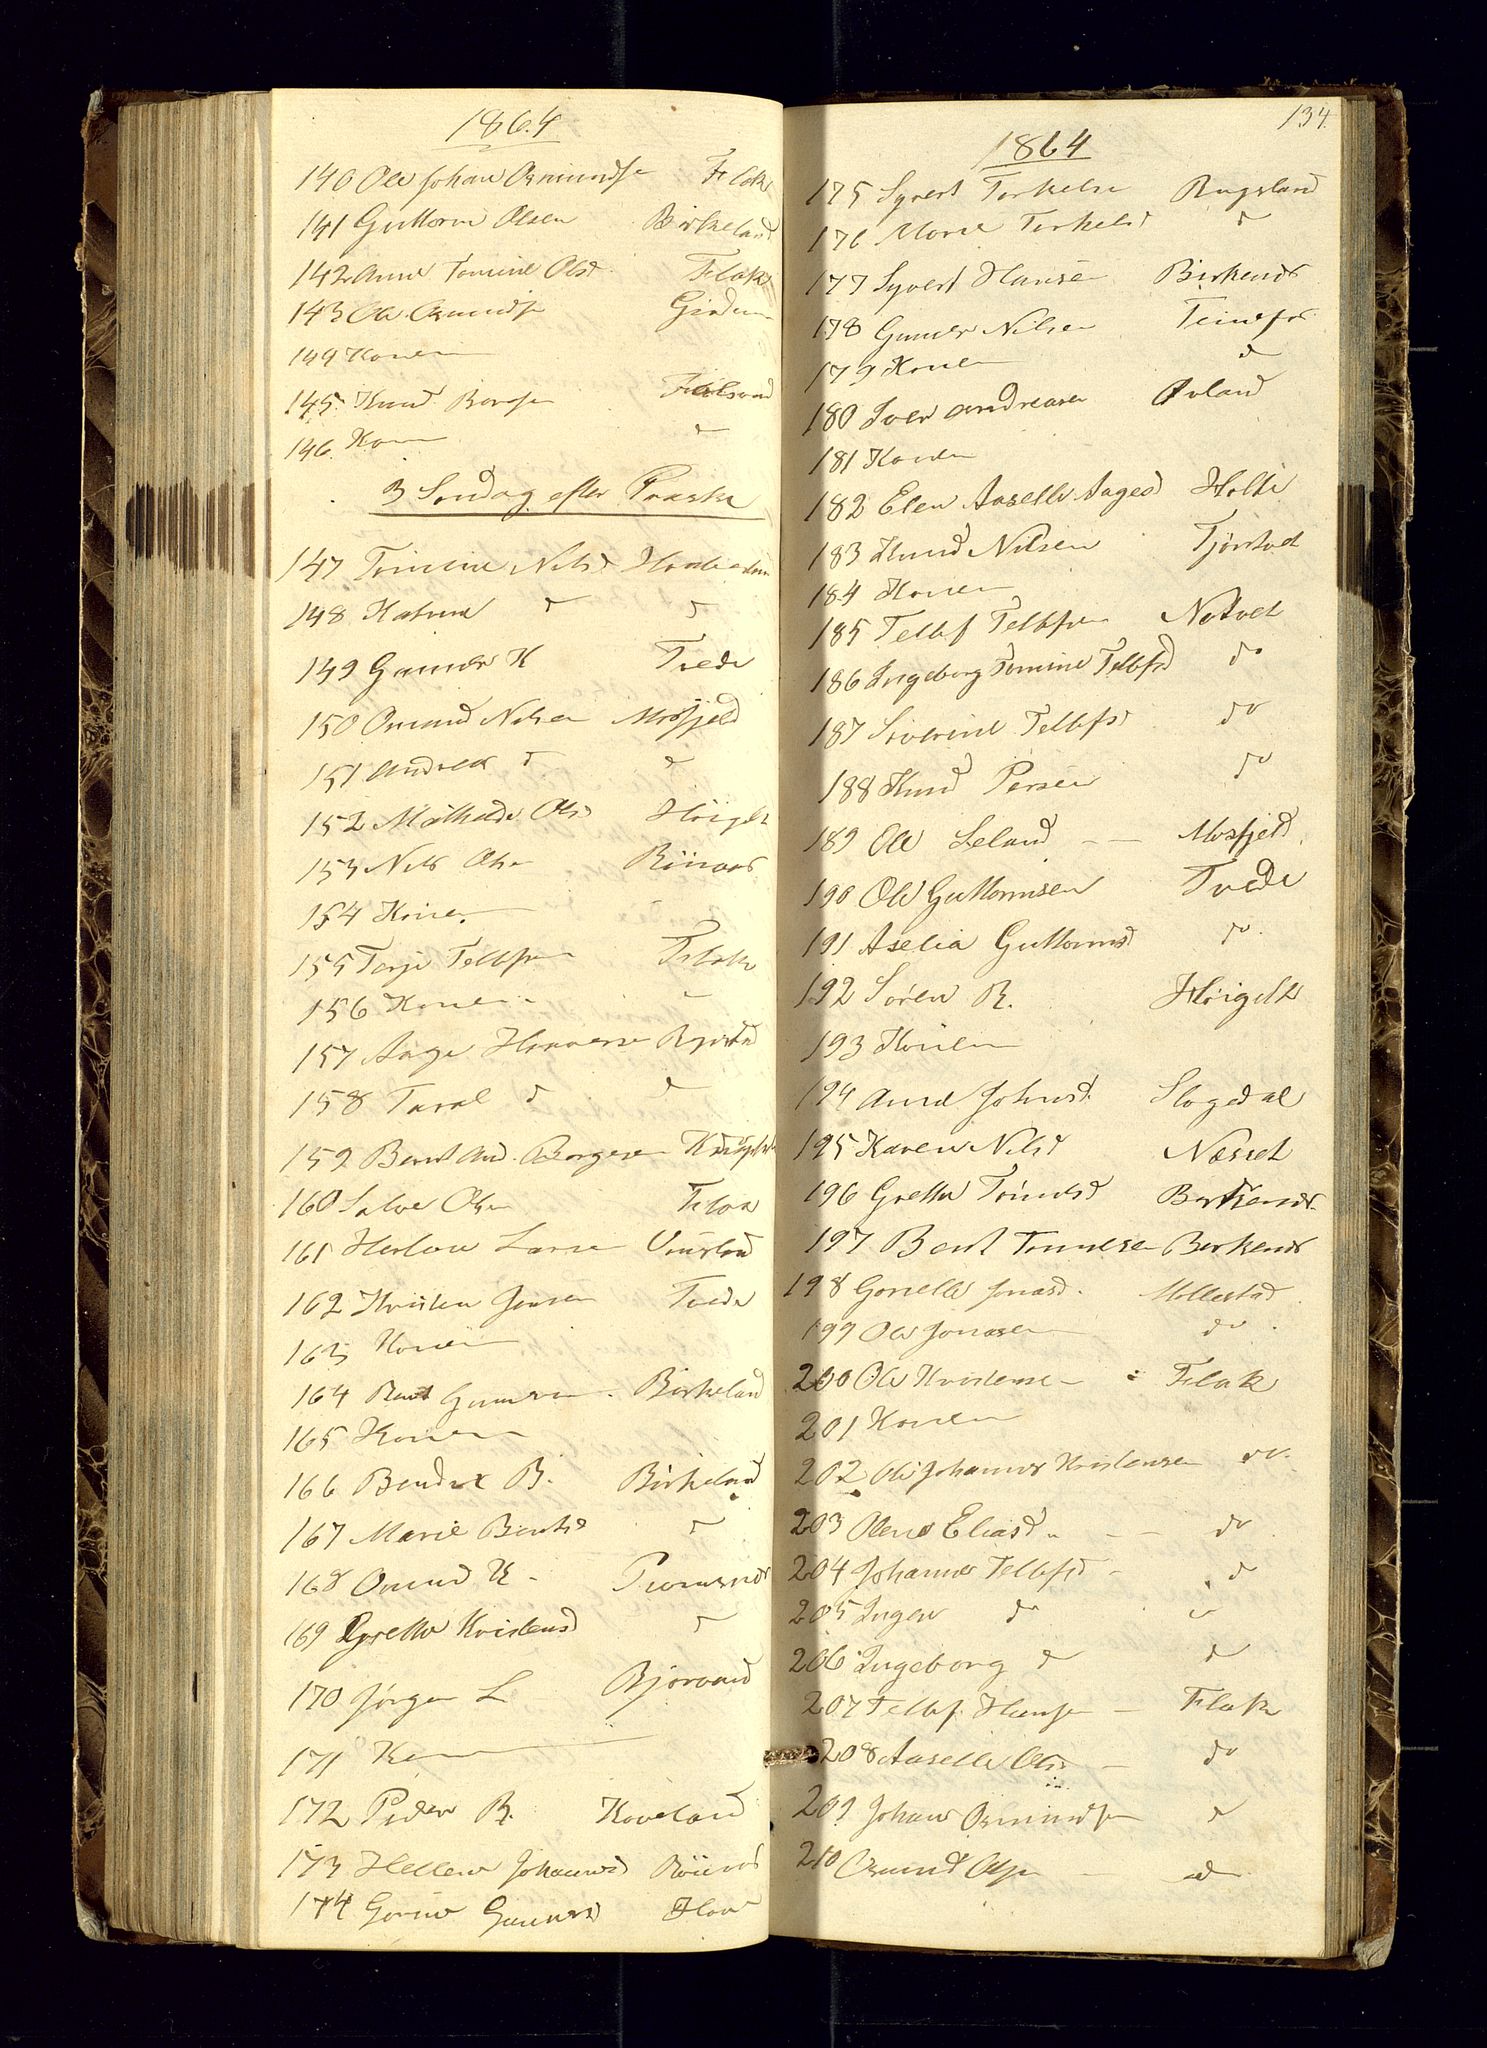 1864
140 Ole Johan Osmunds Flak
141 Guttorm Olsen Birkeland
142 Anne Tomine Olsd Flak
143 Ole Osmunds
144 Konen
145 Knud
146 Kon d
3 Søndag efter Paaske
147 Tomine Nilsd
148 d d
149 Gunder K Tvede
150 Osmund Nilsen Mosfjeld
151 Andreas d d
152 Mathilde Olsd Høigilt
153 Nils Olsen
154 Konen
155 Terje Tellefsen Flak
156 Konen
157 Aage
158 Taral d d
159 Bernt And. Borgesen
160 Salve Olsen Flaa
161 Larsen
162 Kristen Jensen Tvede
163 Konen
164 Bent Gundersen Birkeland
165 Konen
166 Bendix B. Birkeland
167 Marie Bentsd d
168 Osmund K
169 Grethe Kristensd d
170 Jørgen L Bjorvand
171 Kon
172 Peder B. Koveland
173 Hellene Johannesd
174 Gundersd Flaa
134
1864
175 Syvert Torkelsen Rugsland
176 Marie Torkelsd d
177 Syvert Hansen Birkenes
178 Gunder Nilsen Teinefos
179 Konen d
180 Iver Andreasen Øvland
181 Konen
182 Elen Aaselle Aagesd Holte
183 Knud Nilsen
184 Konen
185 Tellef Tellefsen
186 Ingeborg Tomine Tellefsd do
187 Siverine Tellefsd do
188 Knud Persen do
189 Ole Leland - - Mosfjeld
190 Ole Guttormsen Tvede
191 Aselia Guttormsd do
192 Søren R. Høigilt
193 Konen
194 Anne Johnsd Slogedal
195 Karen Nilsd Næsset
196 Grethe Tønnesd Birkenes
197 Bent Tønnesen Birkenes
198 Jonasd. Mollestad
199 Ole Jonasen do
200 Ole Kristensen Flak
201 Konen
202 Ole Johannes Kristensen do
203 Olene Eliasd - - do
204 Johanne Tellefsd - d
205 Inger do d
206 Ingeborg d d
207 Tellef Hans - Flak
208 Aaselle Olsd - do
209 Johan Osmunds d
210 Osmund Ols - d